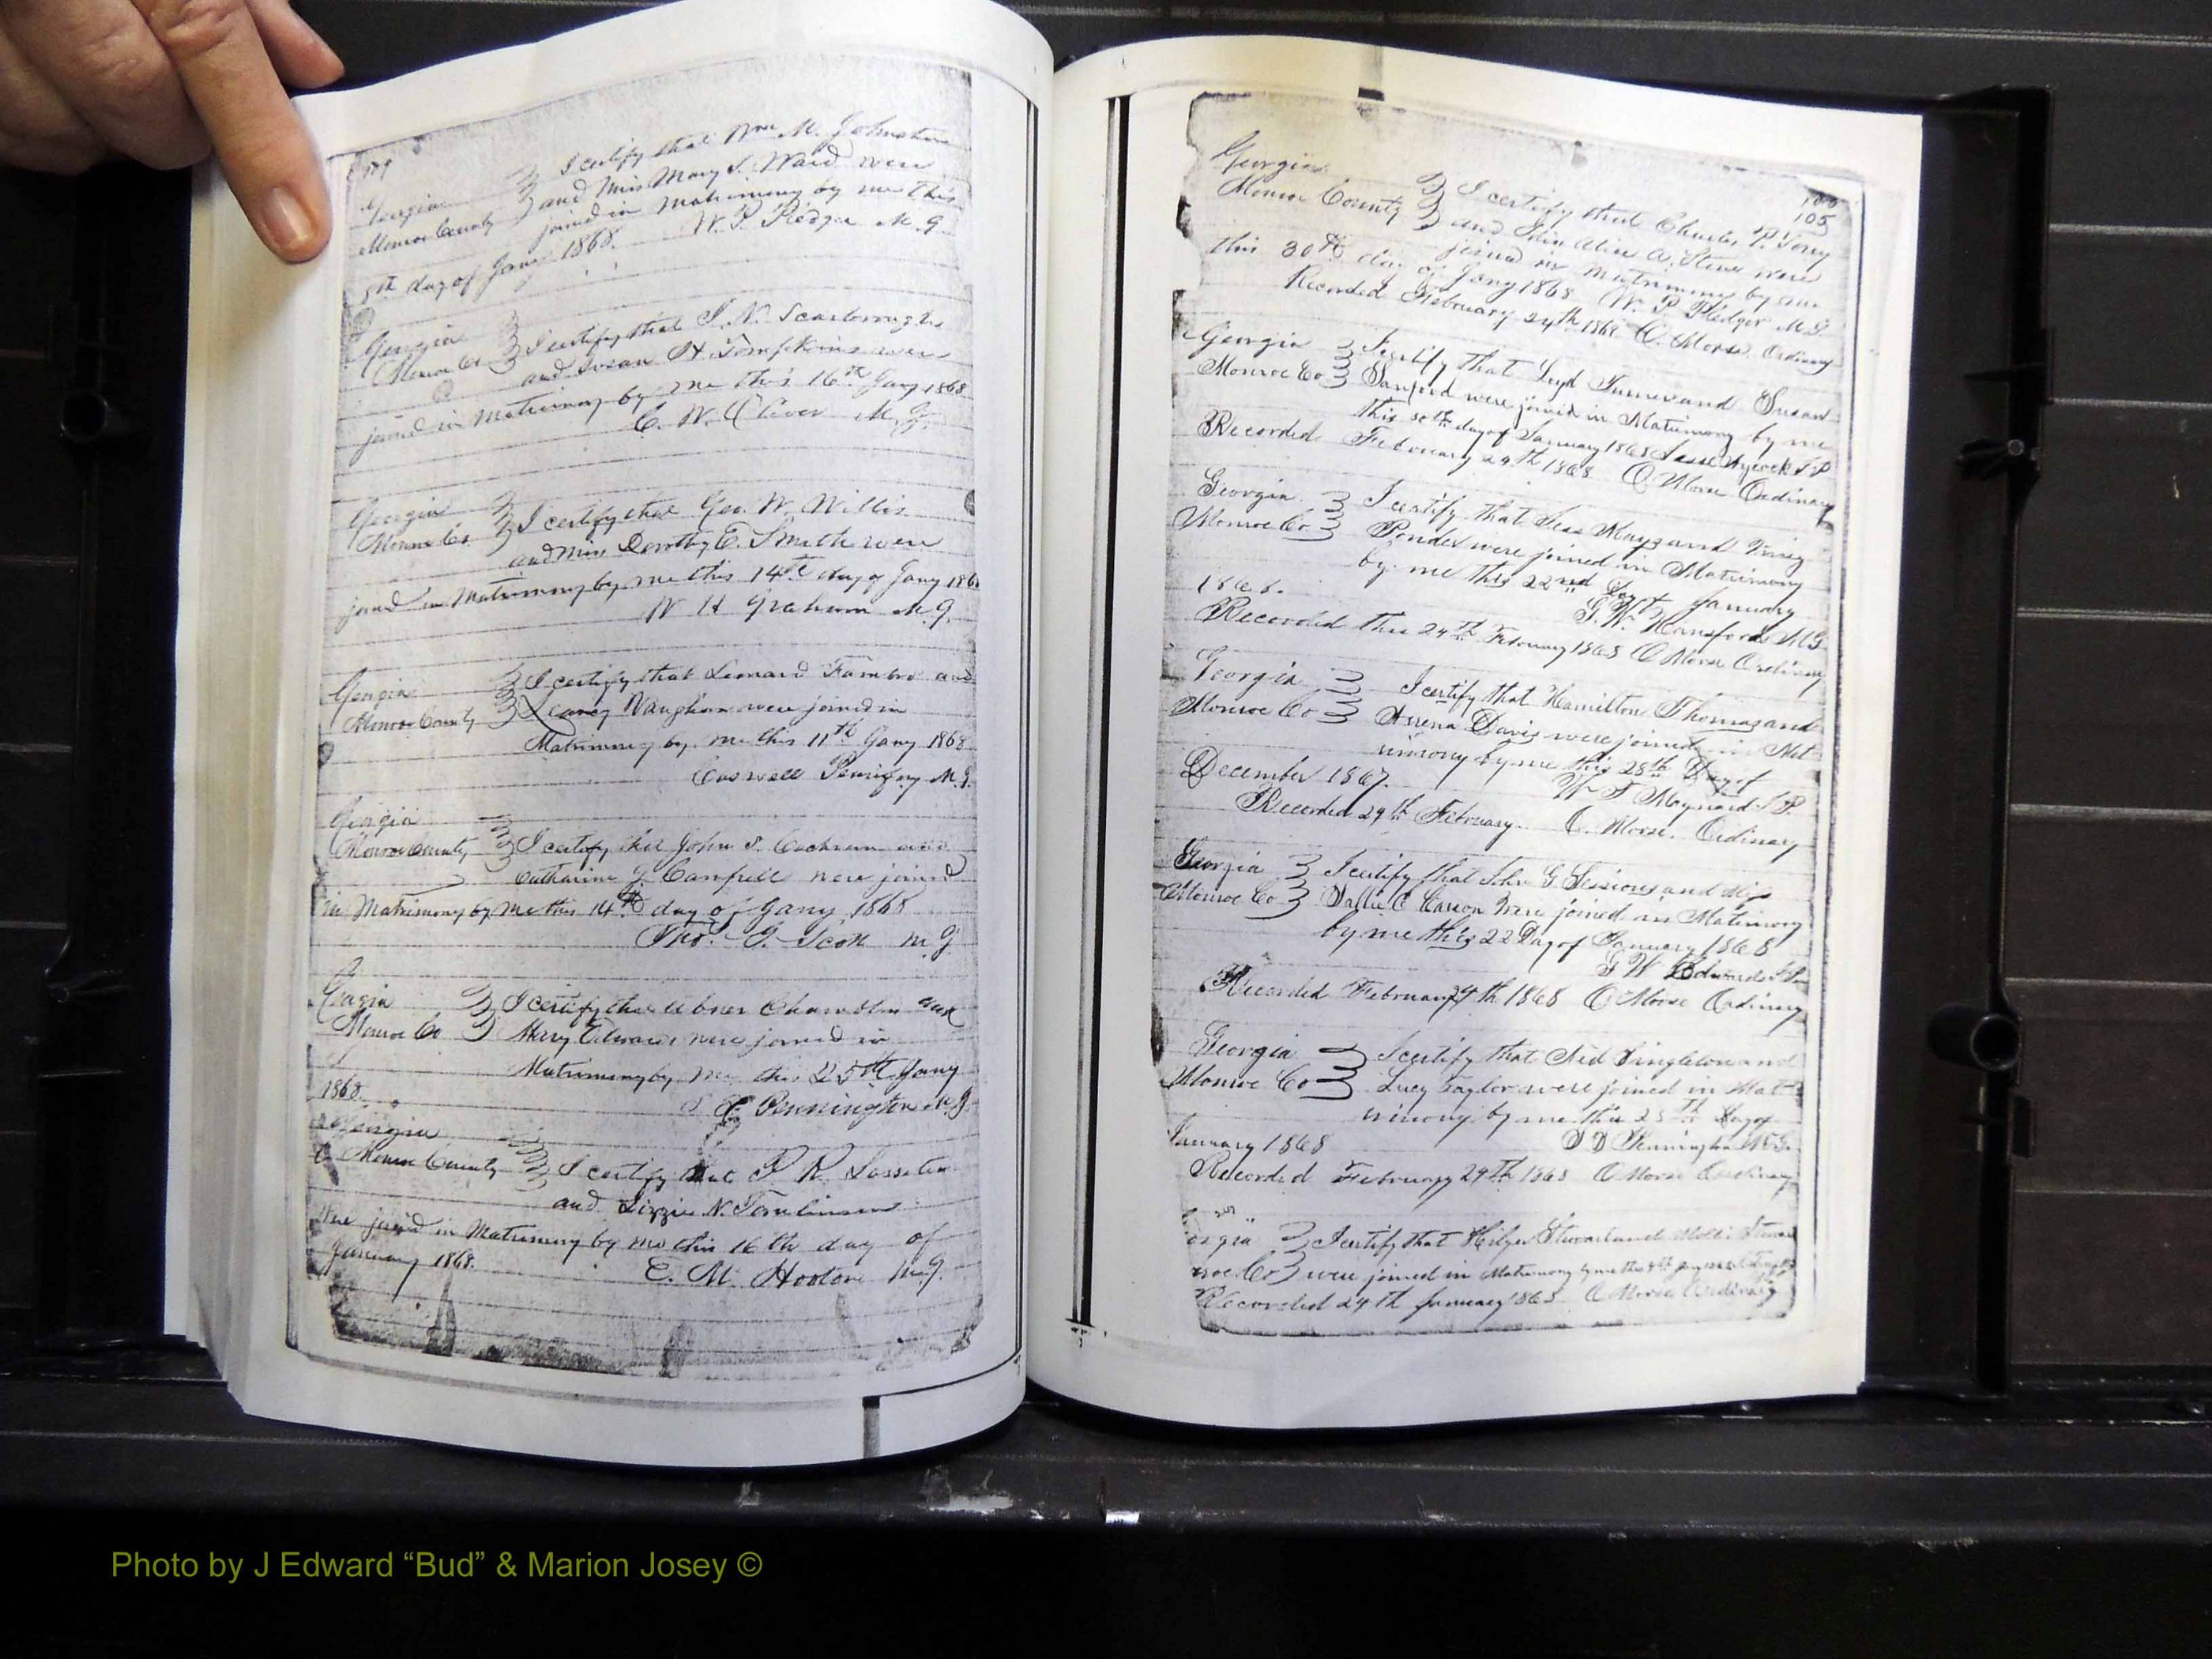 I certify that Wm M. Johnston
Georgia and Miss Mary S. Ward were
Monroe County joined in Matrimony by me this
8th day of Jany 1868. W. P. Pledger M. G.
Georgia I certify that J. N. Scarborough
Monroe Co and Susan H Tompkins were
joined in Matrimony by me this 16th Jany 1868
C. W. Oliver M. G.
Georgia I certify that Geo. W. Willis
Monroe Co. and Miss Dorothy E. Smith were
joined in Matrimony by me this 14th day of Jany
W H Graham M. G.
Georgia I certify that Leonard Fambro and
Monroe County Vaughan were joined in
Matrimony by me this 11th Jany 1868
Caswell M. G.
Georgia
Monroe County I certify that John S. Cochran and
Catharine J Campbell were joined
in Matrimony by me this 14th day of Jany 1868
Tho. G. Scott M. G.
Georgia I certify that Abner and
Monroe Co Mary Edwards were joined in
Matrimony by me this 25th Jany
1868. Pennington M. G.
Georgia
Monroe County I certify that P. R. Lasseter
and Lizzie N. Tomlinson
Were joined in Matrimony by me this 16th day of
January 1868. C. M. Hooten M. G.
105
Georgia
Monroe County I certify that Charles P. Tony
and Miss Alice A. were
joined in Matrimony by me
this 30th day of Jany 1868 W. P. Pledger M. G.
Recorded February 24th 1868 O. Morse Ordinary
Georgia I certify that Loyd Turner and Susan
Monroe Co Sanford were joined in Matrimony by me
this day of January 1868 J P
Recorded February 24th 1868 O Morse Ordinary
Georgia I certify that Mays and
Monroe Co Ponder were joined in Matrimony
by me this 22nd Day of January
1868.
G. W. M G
Recorded this 24th February 1868 O Morse Ordinary
Georgia I certify that Hamilton Thomas and
Monroe Co Davis were joined in Mat
rimony by me this 28th Day of
December 1867. W T Maynard J. P.
Recorded 24th February. O. Morse. Ordinary
Georgia I certify that John G Sessions and Miss
Monroe Co Sallie C Carson Were joined in Matrimony
by me this 22 Day of January 1868
G W Edwards
Recorded February 24th 1868 O Morse Ordinary
Georgia I certify that Ned Singleton and
Monroe Co Lucy Taylor were joined in Mat
rimony by me this 25th Day of
January 1868 Pennington M. G.
Recorded February 24th 1868 O Morse Ordinary
orgia I certify that and
roe Co were joined in Matrimony by me this
Recorded 24th January 1868 O Morse Ordinary
Photo by J Edward “Bud” & Marion Josey ©